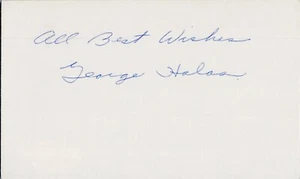 All Best Wishes
George Halas